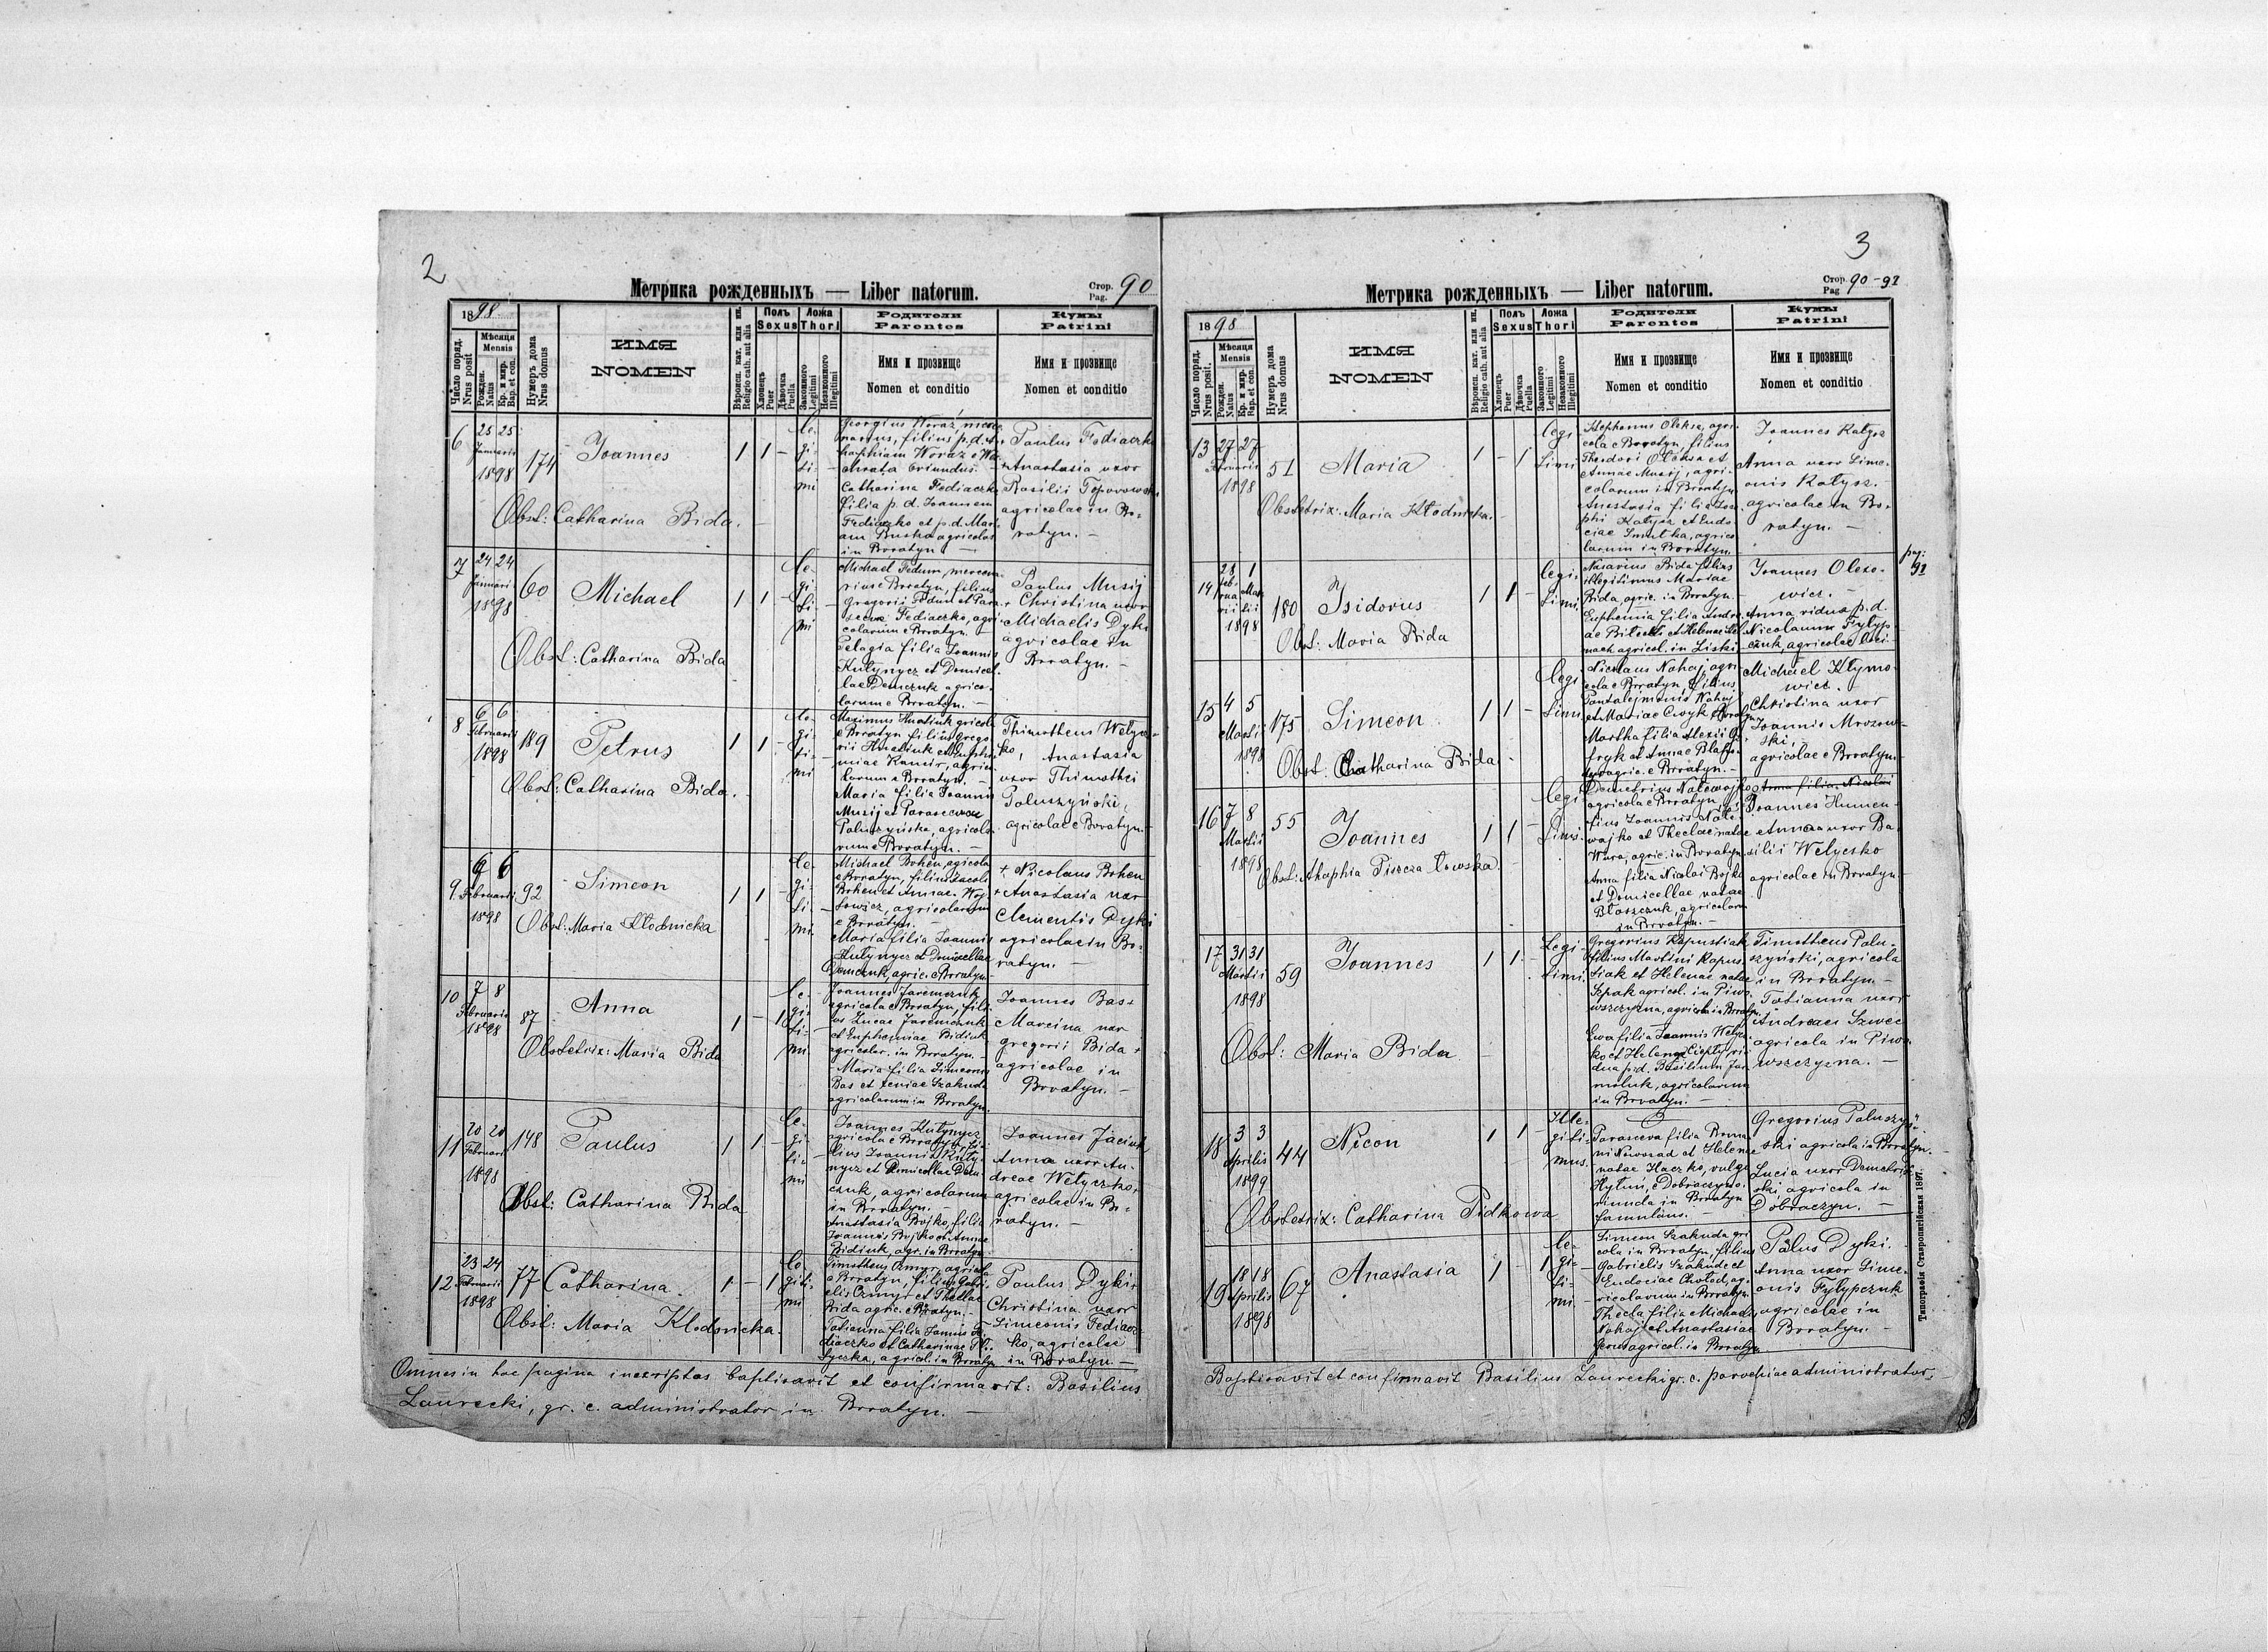 2
Метрика рожденныхъ — Liber natorum.
Стор. Pag. 90
1898
Число поряд. Nrus posit
Мѣсяця Mensis
Рожден. Natus
Кр. и мир. Bap. et con.
Нумеръ дома Nrus domus
ИМЯ
NOMEN
Вѣроисп. кат. или ин. Religio cath. aut alia
Полъ Sexus
Хлопець Puer
Дѣвочка Puella
Ложа Thori
Законного Legitimi
Незаконного Illegitimi
Родители
Parentes
Имя и прозвище
Nomen et conditio
Кумы
Patrini
Имя и прозвище
Nomen et conditio
6 25 25 Januarii 1898 174 Joannes 1 1 - legitimi
Obst: Catharina Bida.
Catharina Fediaczko
filia p. d. Joannem
Fediaczko et p. d. Mari-
am agricolas
in Boratyn
Paulus Fediaczko
Anastasia uxor
Basilii
agricolae in Bo-
ratyn. -
7 24 24 Januarii 1898 60 Michael 1 1 - legitimi
Obst: Catharina Bida
Michael Fedun, mercena-
rius e Boratyn, filius
Gregorii Fedun et Para-
scevae Fediaczko, agri-
colarum e Boratyn.
Pelagia filia Joannis
Kutynycz et Domicel-
lae Demczuk agrico-
larum e Boratyn. -
Paulus Musij
+ Christina uxor
Michaelis Dyki
agricolae in
Boratyn. -
8 6 6 Februarii 1898 189 Petrus 1 1 - legitimi
Obst: Catharina Bida.
Maximus Hnatiuk agricola
e Boratyn filius Grego-
rii Hnatiuk et Euphe-
miae agrico-
larum e Boratyn. -
Maria filia Joannis
Musij et Parascevae
Paluszyńska, agricola-
rum e Boratyn. -
Thimotheus Wełycz-
ko, Anastasia
uxor Thimothei
Paluszyński,
agricolae e Boratyn. -
9 6 6 Februarii 1898 92 Simeon 1 1 - legitimi
Obst: Maria Kłodnicka
Michael Bohen, agricola
e Boratyn, filius Jacobi
Bohen et Annae Woj-
towicz, agricolarum
e Boratyn.
Maria filia Joannis
Kutynycz et Domicellae
Demczuk, agric. e Boratyn.
+ Nicolaus Bohen
+ Anastasia uxor
Clementis Dyki
agricolae in Bo-
ratyn. -
10 7 8 Februarii 1898 87 Anna 1 - 1 legitimi
Obstetrix: Maria Bida
Joannes Jaremczuk
agricola e Boratyn, fili-
us Lucae Jaremczuk
et Euphemiae Bidiuk
agricolar. in Boratyn. -
Maria filia Simeonis
Bas et Xeniae Szakuda
agricolarum in Boratyn.
Joannes Bas +
Marcina uxor
Gregorii Bida +
agricolae in
Boratyn. -
11 20 20 Februarii 1898 148 Paulus 1 1 - legitimi
Obst: Catharina Bida
Joannes Kutynycz
agricola e Boratyn, fi-
lius Joannis Kuty-
nycz et Domicellae Dem-
czuk, agricolarum
in Boratyn. -
Anastasia Bojko, filia
Joannis Bojko et Annae
Bidiuk, agr. in Boratyn
Joannes Jaciuk
Anna uxor An-
dreae Wełyczko,
agricolae in Bo-
ratyn. -
12 23 24 Februarii 1898 77 Catharina 1 - 1 legitimi
Obst: Maria Kłodnicka.
Timotheus Czmyr, agricola
e Boratyn, filius Gabri-
elis Czmyr et Theclae
Bida agric. e Boratyn. -
Tatianna filia Joannis Fe-
diaczko et Catharinae
agricol. in Boratyn
Paulus Dyki +
Christina uxor
Simeonis Fediacz-
ko, agricolae
in Boratyn. -
Omnes in hac pagina inscriptos baptisavit et confirmavit: Basilius
Laurecki, gr. c. administrator in Boratyn. -
3
Метрика рожденныхъ — Liber natorum.
Стор. Pag 90-91
1898
Число поряд. Nrus posit.
Мѣсяця Mensis
Рожден. Natus
Кр. и мир. Bap. et con.
Нумеръ дома Nrus domus
ИМЯ
NOMEN
Вѣроисп. кат. или ин. Religio cath. aut alia
Полъ Sexus
Хлопець Puer
Дѣвочка Puella
Ложа Thori
Законного Legitimi
Незаконного Illegitimi
Родители
Parentes
Имя и прозвище
Nomen et conditio
Кумы
Patrini
Имя и прозвище
Nomen et conditio
13 27 27 Februarii 1898 51 Maria 1 - 1 legitimi
Obstetrix: Maria Kłodnicka. -
Stephanus Oleksa, agri-
cola e Boratyn, filius
Theodori Oleksa et
Annae Musij, agri-
colarum in Boratyn
Anastasia filia Jose-
phi Katysz et Eudo-
ciae agrico-
larum in Boratyn.
Joannes Katysz
Anna uxor Sime-
onis Katysz.
agricolae in Bo-
ratyn. -
pag: 91
14 28 Februarii 1 Martii 1898 180 Isidorus 1 1 - legitimi
Obst: Maria Bida
Nasarius Bida filius
illegitimus Mariae
Bida, agric. in Boratyn.
Euphemia filia Andre-
ae et Helenae
agricol. in Liski
Joannes Olexo-
wicz. -
Anna vidua p. d.
Nicolaum Fyłyp-
czuk, agricolae
15 4 5 Martii 1898 175 Simeon 1 1 - legitimi
Obst: Catharina Bida.
Nicolaus Nahaj, agri-
cola e Boratyn, filius
Pantalejmonis Nahaj
et Mariae Cwyk e Boratyn
Martha filia Alexii
et Annae
agric. e Boratyn. -
Michael Kłymo-
wicz.
Christina uxor
Joannis Mrozow-
ski,
agricolae e Boratyn
16 7 8 Martii 1898 55 Joannes 1 1 - legitimi
Obst: Ahaphia
Demetrius Nalewajko
agricola e Boratyn, fi-
lius Joannis Nale-
wajko et Theclae natae
agric. in Boratyn
Anna filia Nicolai Bojko
et Domicellae natae
Błaszczuk, agricolarum
in Boratyn. -
Anna filia Nicolai
Joannes Humen-
et Anna uxor Ba-
silii Wełyczko
agricolae in Boratyn
17 31 31 Martii 1898 59 Joannes 1 1 - Legitimi
Obst: Maria Bida -
Gregorius Kapustiak
filius Martini Kapus-
tiak et Helenae natae
Szpak agricol. in Piwo-
wszczyzna, agricola in Boratyn.
Ewa filia Joannis Wełycz-
ko et Helenae vi-
dua p. d. Basilium Jar-
moluk, agricolarum
in Boratyn. -
Timotheus Palu-
szyński, agricola
in Boratyn. -
Tatianna uxor
Andreae Szwec
agricola in Piwo-
wszczyzna. -
18 3 3 Aprilis 1899 44 Nicon 1 1 - Illegitimus
Obstetrix: Catharina Pidkowa
Parasceva filia
et Helenae
natae Haczko, vulgo
e Dobraczyn o-
riunda in Boratyn
famulans. -
Gregorius Paluszyń-
ski agricola in Boratyn.
Lucia uxor
agricola in
Dobraczyn. -
19 18 18 Aprilis 1898 67 Anastasia 1 - 1 legitimi
Simeon Szakuda agri-
cola in Boratyn, filius
Gabrielis Szakuda et
Eudociae Chołod, ag-
ricolarum in Boratyn
Thecla filia Michaelis
Nahaj et Anastasiae
agricol. in Boratyn
Palus Dyki.
Anna uxor Sime-
onis Fyłypczuk
agricolae in
Boratyn. -
Baptisavit et confirmavit Basilius Laurecki gr. c. parochiae administrator. -
Типографія Ставропигійская 1897.